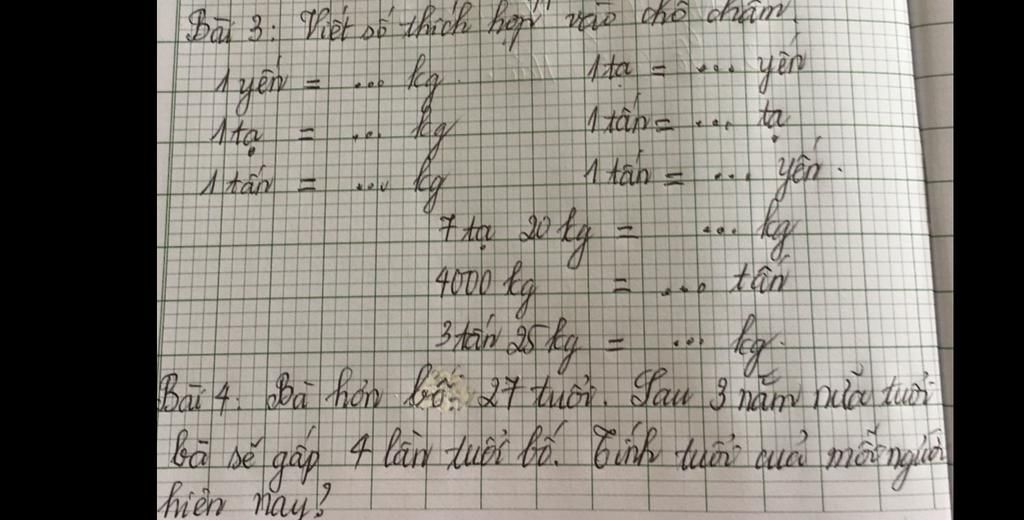 Bài 3: Viết số thích hợp vào chỗ chấm.
1 yến = ... kg 1 tạ = ... yến
1 tạ = ... kg 1 tấn = ... tạ
1 tấn = ... kg 1 tấn = ... yến.
7 tạ 20 kg = ... kg
4000 kg = ... tấn
3 tấn 25 kg = ... kg.
Bài 4: Bà hơn bố: 27 tuổi. Sau 3 năm nữa tuổi
bà sẽ gấp 4 lần tuổi bố. Tính tuổi của mỗi người
hiện nay?